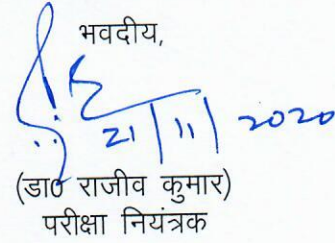 भवदीय,
21/11/2020
(डा० राजीव कुमार)
परीक्षा नियंत्रक